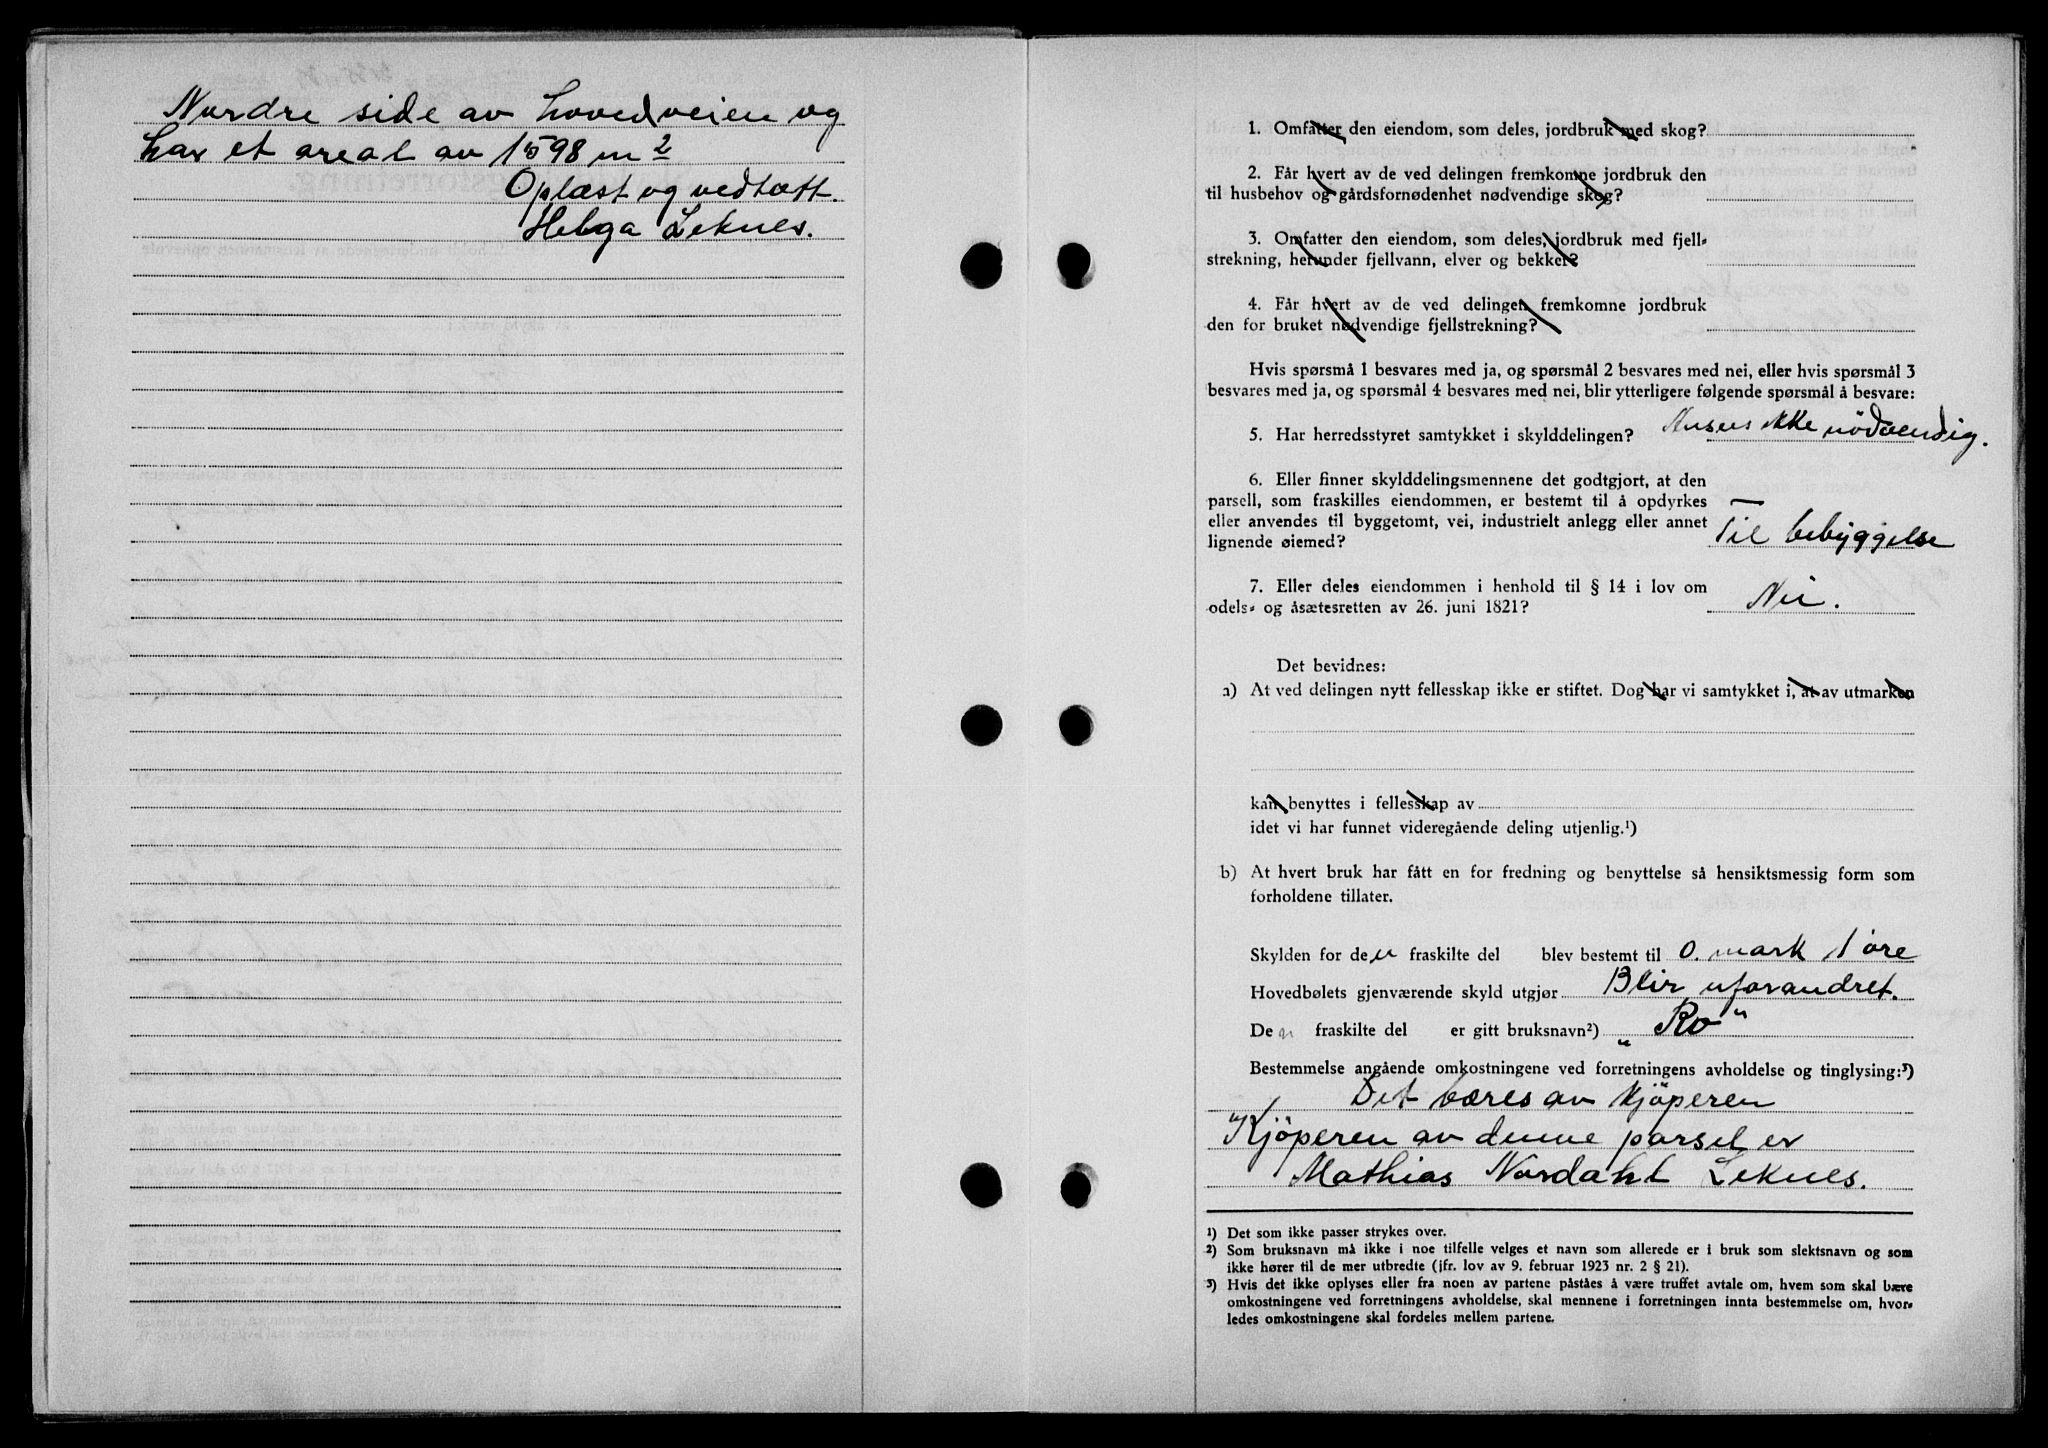 Nordre side av hovedveien og
har et areal av 1598 m²
Oplæst og vedtatt.
Helga Leknes.
1. Omfatter den eiendom, som deles, jordbruk med skog?
2. Får hvert av de ved delingen fremkomne jordbruk den
til husbehov og gårdsfornødenhet nødvendige skog?
3. Omfatter den eiendom, som deles, jordbruk med fjell-
strekning, herunder fjellvann, elver og bekker?
4. Får hvert av de ved delingen fremkomne jordbruk
den for bruket nødvendige fjellstrekning?
Hvis spørsmå 1 besvares med ja, og spørsmål 2 besvares med nei, eller hvis spørsmål 3
besvares med ja, og spørsmål 4 besvares med nei, blir ytterligere følgende spørsmål å besvare:
5. Har herredsstyret samtykket i skylddelingen? Anses ikke nödvendig.
6. Eller finner skylddelingsmennene det godtgjort, at den
parsell, som fraskilles eiendommen, er bestemt til å opdyrkes
eller anvendes til byggetomt, vei, industrielt anlegg eller annet
lignende øiemed? Til bebyggelse
7. Eller deles eiendommen i henhold til § 14 i lov om
odels- og åsætesretten av 26. juni 1821? Nei.
Det bevidnes:
a) At ved delingen nytt fellesskap ikke er stiftet. Dog har vi samtykket i, at av utmarken
kan benyttes i fellesskap av
idet vi har funnet videregående deling utjenlig.¹)
b) At hvert bruk har fått en for fredning og benyttelse så hensiktsmessig form som
forholdene tillater.
Skylden for den fraskilte del blev bestemt til 0. mark 1 øre
Hovedbølets gjenværende skyld utgjør Blir uforandret.
Den fraskilte del er gitt bruksnavn²) „Ro"
Bestemmelse angående omkostningene ved forretningens avholdelse og tinglysing:³)
Det bæres av kjöperen
Kjöperen av denne parsel er
Mathias Nordahl Leknes.
¹) Det som ikke passer strykes over.
²) Som bruksnavn må ikke i noe tilfelle velges et navn som allerede er i bruk som slektsnavn og som
ikke hører til de mer utbredte (jfr. lov av 9. februar 1923 nr. 2 § 21).
³) Hvis det ikke oplyses eller fra noen av partene påståes å være truffet avtale om, hvem som skal bære
omkostningene ved forretningens avholdelse, skal mennene i forretningen innta bestemmelse om, hvor-
ledes omkostningene skal fordeles mellem partene.